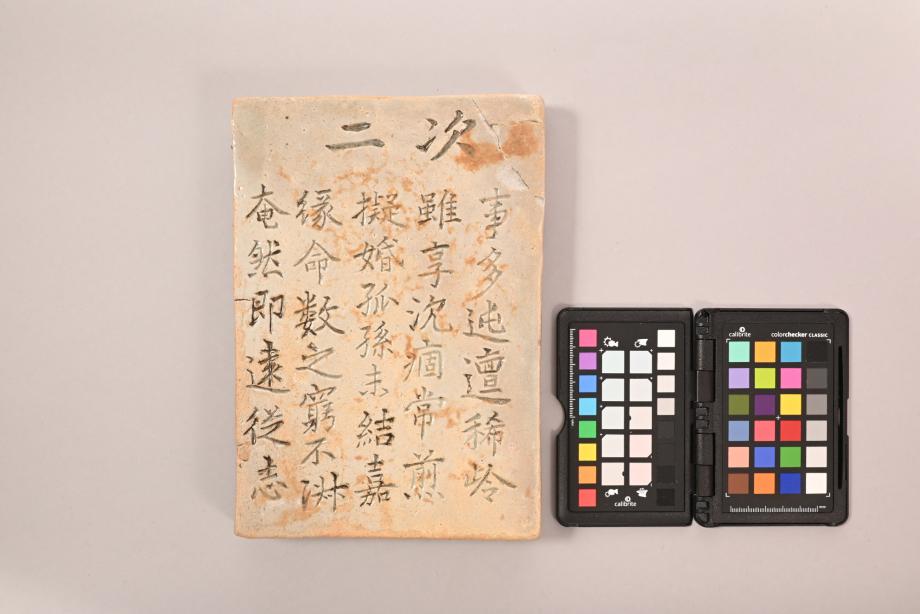 次二
事多迍邅稀岭
雖享沈痼常煎
擬婚孤孫未結嘉
緣命數之窮不
奄然即逺從志
calibrite
calibrite
colorchecker CLASSIC